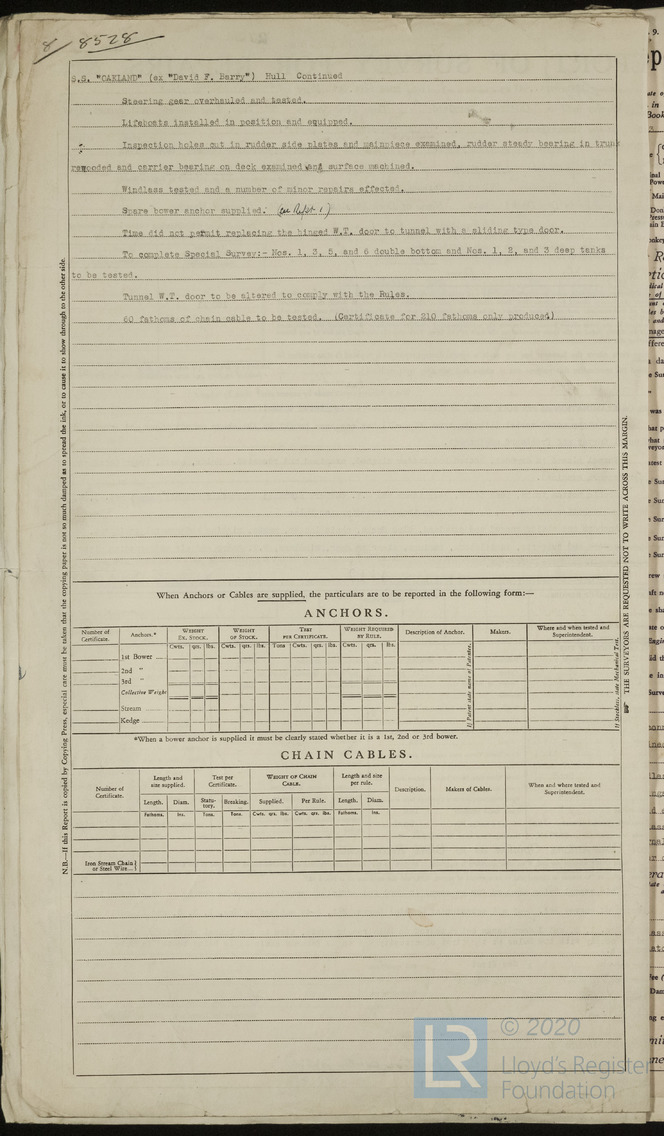 8/8528
S.S. "OAKLAND" (ex "David F. Barry") Hull Continued
Steering gear overhauled and tested.
Lifeboats installed in position and equipped.
Inspection holes cut in rudder side plates and mainpiece examined, rudder steady bearing in trunk
rewooded and carrier bearing on deck examined and surface machined.
Windlass tested and a number of minor repairs effected.
Spare bower anchor supplied. (on Rept 1)
Time did not permit replacing the hinged W.T. door to tunnel with a sliding type door.
To complete Special Survey:- Nos. 1, 3, 5, and 6 double bottom and Nos. 1, 2, and 3 deep tanks
to be tested.
Tunnel W.T. door to be altered to comply with the Rules.
60 fathoms of chain cable to be tested. (Certificate for 210 fathoms only produced)
N.B.—If this Report is copied by Copying Press, especial care must be taken that the copying paper is not so much damped as to spread the ink, or to cause it to show through to the other side.
THE SURVEYORS ARE REQUESTED NOT TO WRITE ACROSS THIS MARGIN.
When Anchors or Cables are supplied, the particulars are to be reported in the following form:—
ANCHORS.
Number of Certificate. Anchors.* WEIGHT EX. STOCK. WEIGHT OF STOCK. TEST PER CERTIFICATE. WEIGHT REQUIRED BY RULE. Description of Anchor. Makers. Where and when tested and Superintendent.
Cwts. qrs. lbs. Cwts. qrs. lbs. Tons Cwts. qrs. lbs. Cwts. qrs. lbs.
1st Bower
2nd "
3rd "
Collective Weight
Stream
Kedge
If Patent state name of Patentee.
If Stockless, state Mechanical Test.
*When a bower anchor is supplied it must be clearly stated whether it is a 1st, 2nd or 3rd bower.
CHAIN CABLES.
Number of Certificate. Length and size supplied. Test per Certificate. WEIGHT OF CHAIN CABLE. Length and size per rule. Description. Makers of Cables. When and where tested and Superintendent.
Length. Diam. Statutory. Breaking. Supplied. Per Rule. Length. Diam.
Fathoms. Ins. Tons. Tons. Cwts. qrs. lbs. Cwts. qrs. lbs. Fathoms. Ins.
Iron Stream Chain
or Steel Wire
LR
© 2020
Lloyd's Register
Foundation